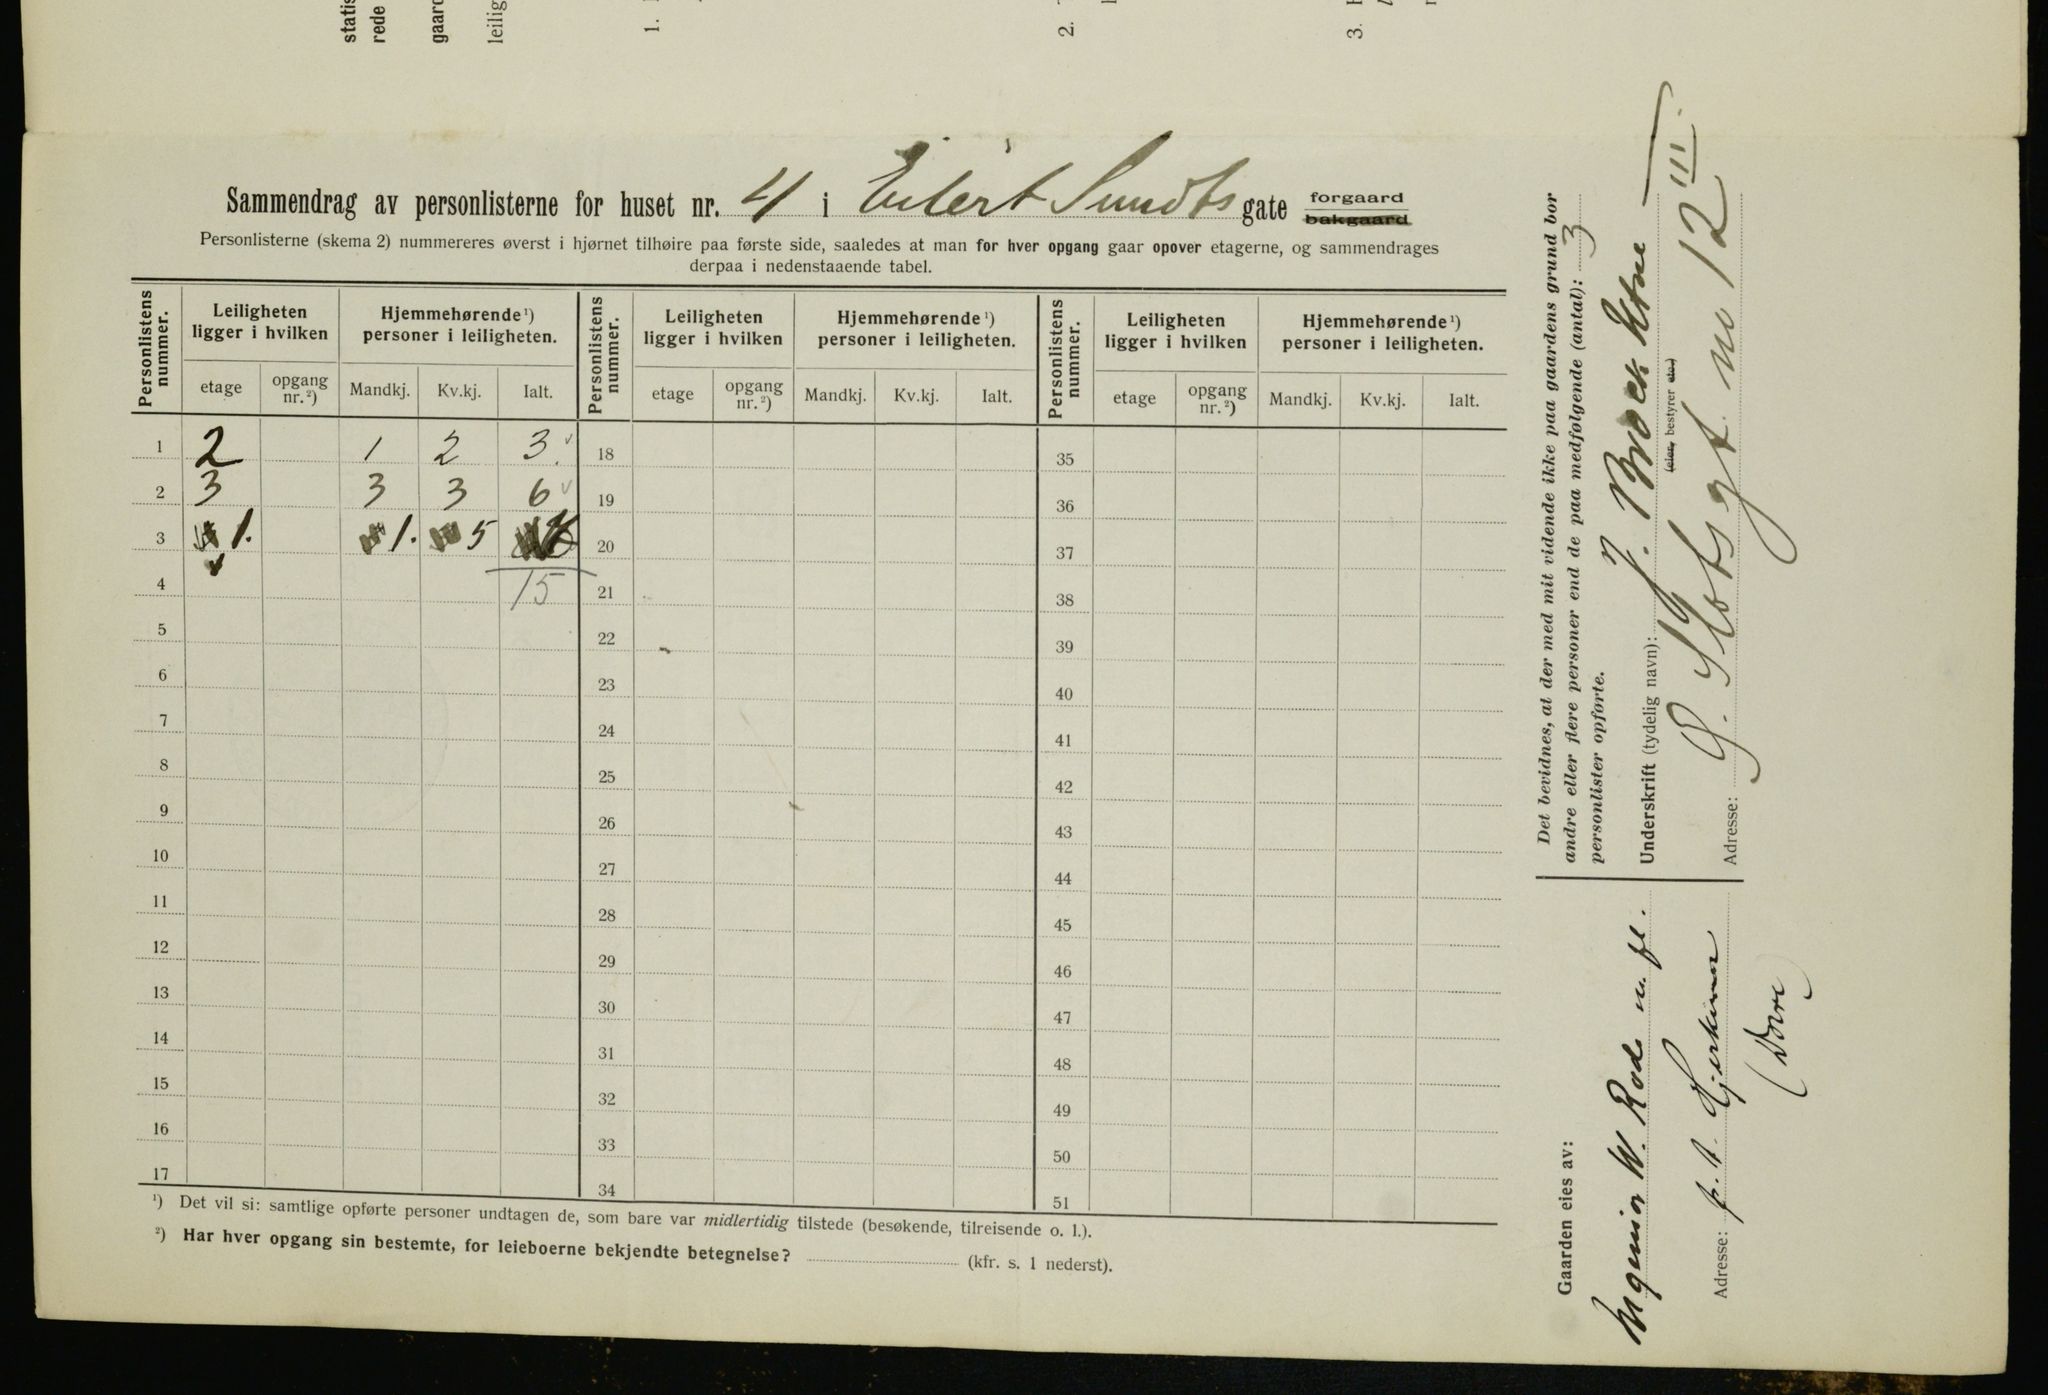 statis
rede
gaard
leilig
1.
2.
3.
Sammendrag av personlisterne for huset nr. 4 i Eilert Sundts gate forgaard bakgaard
Personlisterne (skema 2) nummereres øverst i hjørnet tilhøire paa første side, saaledes at man for hver opgang gaar opover etagerne, og sammendrages
derpaa i nedenstaaende tabel.
Personlistens nummer. Leiligheten ligger i hvilken Hjemmehørende ¹) personer i leiligheten. Personlistens nummer. Leiligheten ligger i hvilken Hjemmehørende ¹) personer i leiligheten. Personlistens nummer. Leiligheten ligger i hvilken Hjemmehørende ¹) personer i leiligheten.
etage opgang nr. ²) Mandkj. Kv.kj. Ialt. etage opgang nr. ²) Mandkj. Kv.kj. Ialt. etage opgang nr. ²) Mandkj. Kv.kj. Ialt.
1 2 1 2 3. 18 35
2 3 3 3 6 19 36
3 1. 1. 5 6 20 37
4 15 21 38
5 22 39
6 23 40
7 24 41
8 25 42
9 26 43
10 27 44
11 28 45
12 29 46
13 30 47
14 31 48
15 32 49
16 33 50
17 34 51
¹) Det vil si: samtlige opførte personer undtagen de, som bare var midlertidig tilstede (besøkende, tilreisende o. l.).
²) Har hver opgang sin bestemte, for leieboerne bekjendte betegnelse? (kfr. s. 1 nederst).
Det bevidnes, at der med mit vidende ikke paa gaardens grund bor
andre eller flere personer end de paa medfølgende (antal): 3
personlister opførte.
Underskrift (tydelig navn): J. Broch
(eier, bestyrer etc.)
Adresse: Ø. Slotsgt. no 12 III.
Gaarden eies av:
W. Rode m. fl.
Adresse: p. t. Hjerkinn
(Dovre)